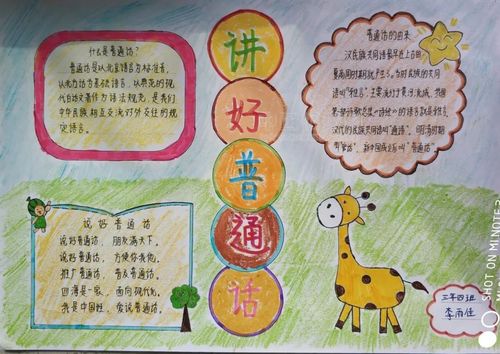 讲好普通话
什么是普通话?
普通话是以北京语音为标准音,
以北方话为基础语言,以典范的现
代白话文著作为语法规范,是我们
中华民族相互交流对外交往的规
定语言。
普通话的由来
汉民族共同语最早在上古的
夏商周时期就产生了。当时民族的共同
语叫"雅言",主要流行于黄河流域,我国
第一部诗歌总集《诗经》的语言就是雅言。
汉代的民族共同语叫"通语",明清时期
叫"官话",新中国成立后叫"普通话"。
说好普通话
说好普通话,朋友满天下。
说好普通话,方便你我他。
推广普通话,普及普通话。
四海是一家,面向现代化。
我是中国娃,爱说普通话。
三年四班
李雨佳
SHOT ON MI NOTE